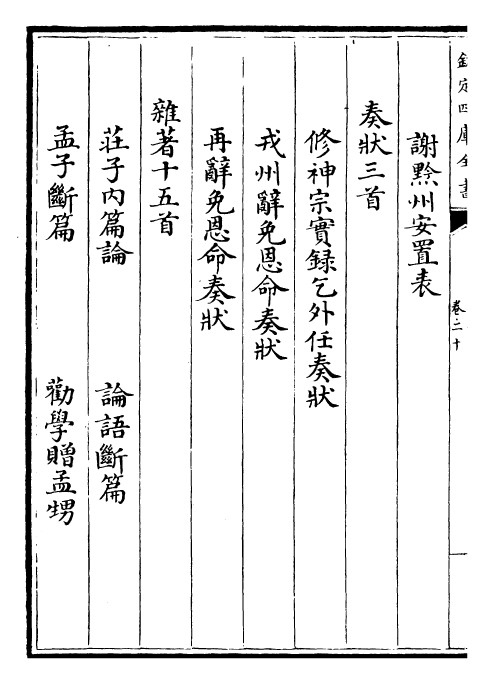 欽定四庫全書
卷二十
謝黔州安置表
奏狀三首
修神宗實録乞外任奏狀
戎州辭免恩命奏狀
再辭免恩命奏狀
雜著十五首
莊子内篇論　論語斷篇
孟子斷篇　勸學贈孟甥